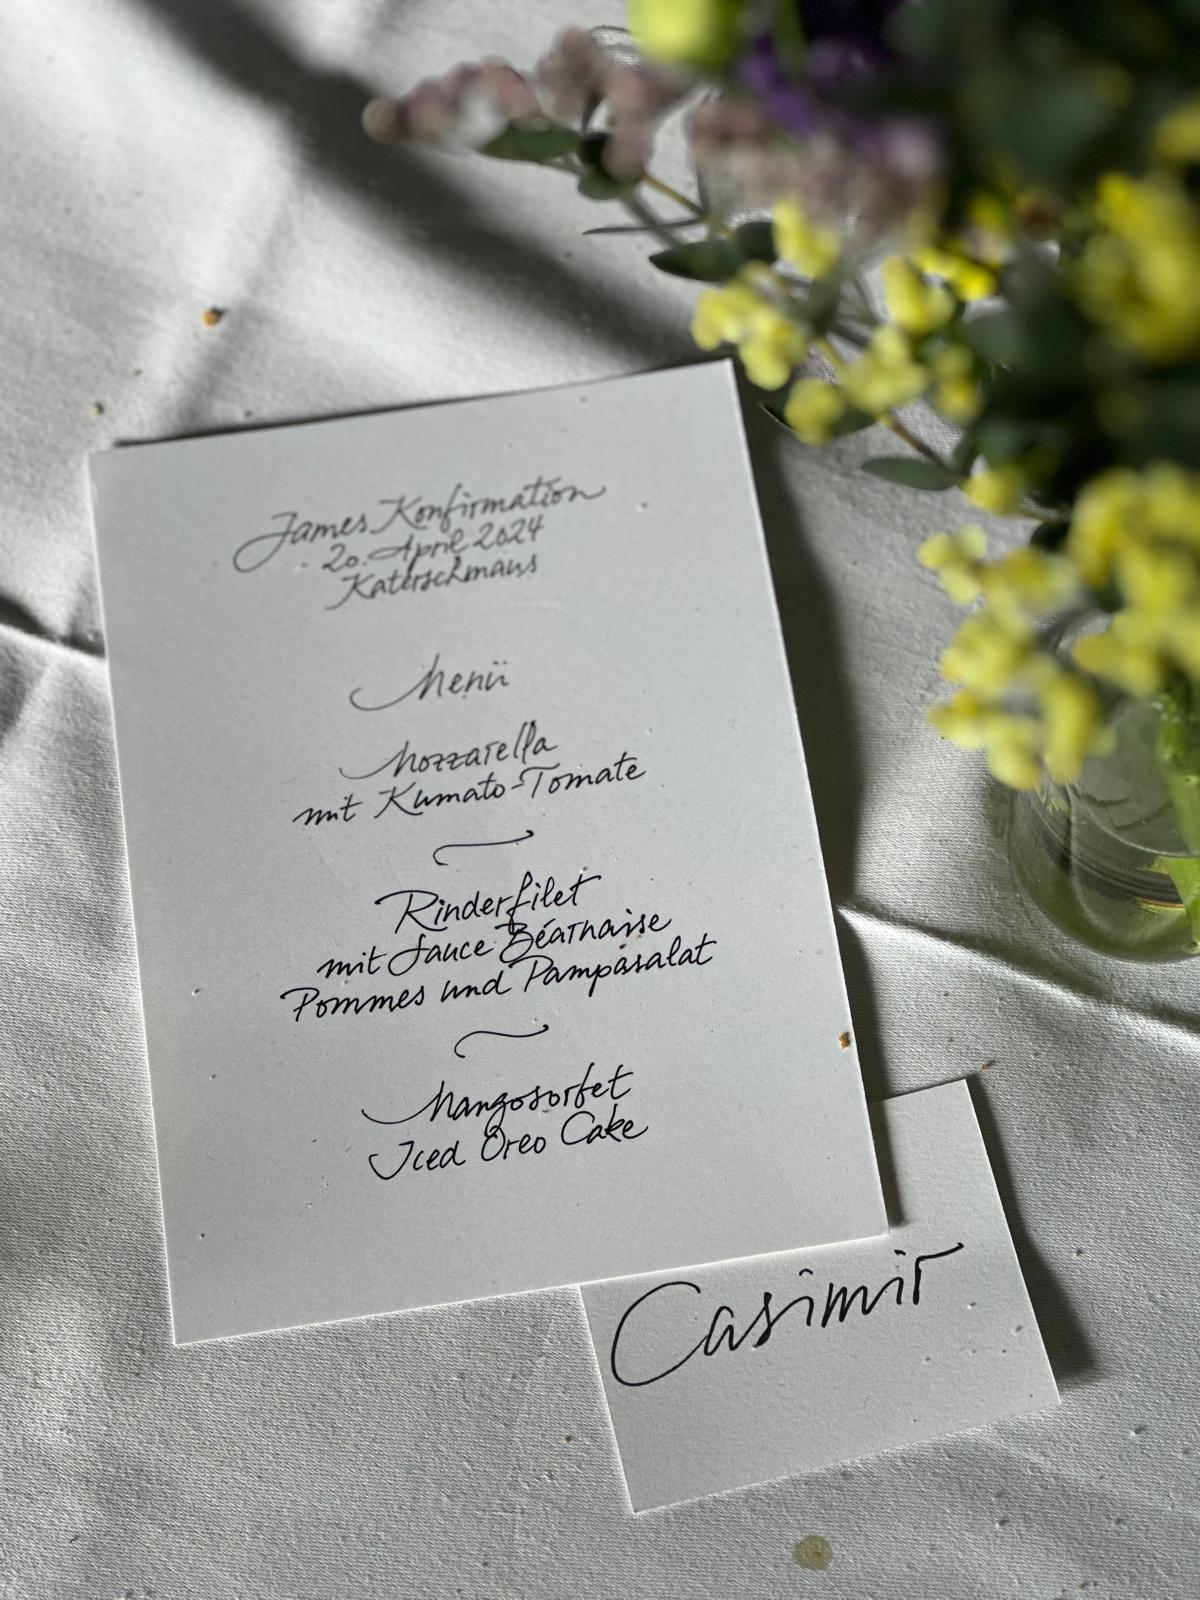 James Konfirmation
20. April 2024
Katerschmaus
Menü
Mozzarella
mit Kumato-Tomate
Rinderfilet
mit Sauce Béarnaise
Pommes und Pampasalat
Mangosorbet
Iced Oreo Cake
Casimir